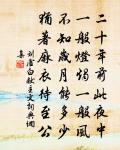 二十年前此夜中
一般燈燭一般風
不知歲月能多少
猶著麻衣待至公
劉虛白獻主文詞典網
集